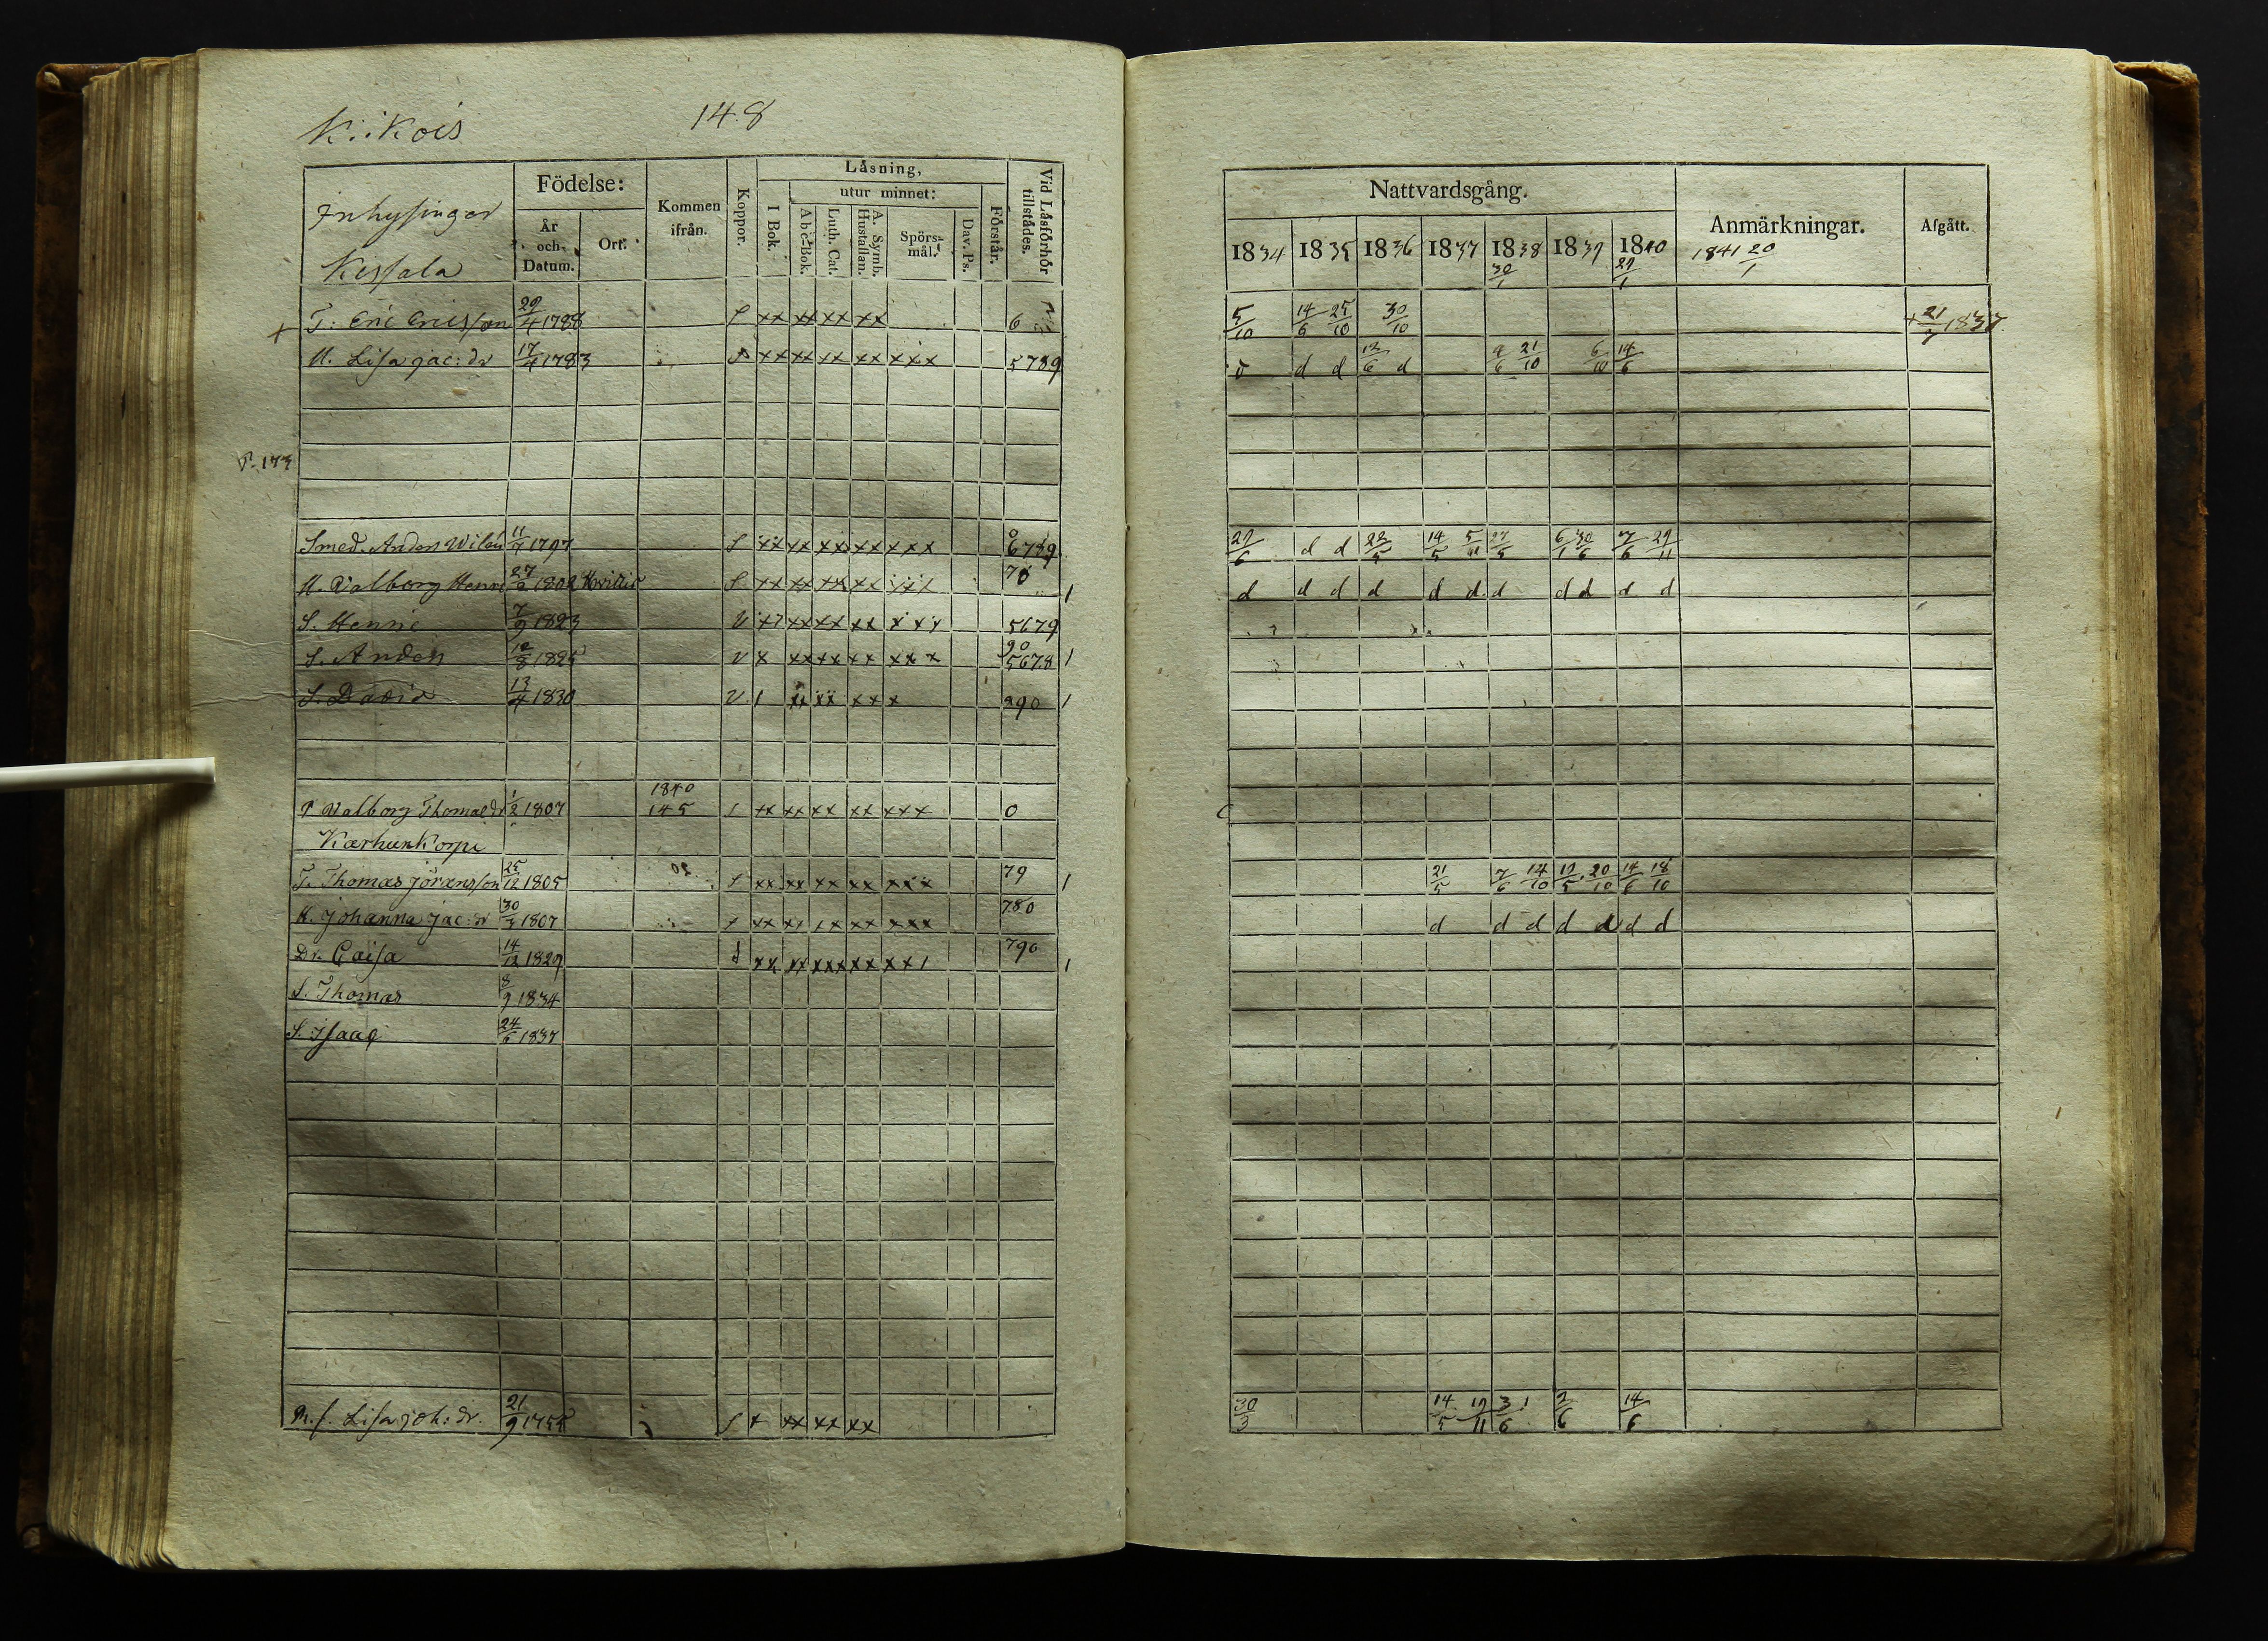 Kiikois 148
Inhysingar
Kessala
Födelse:
År och Datum.
Ort.
Kommen ifrån.
Koppor.
Låsning,
I Bok.
utur minnet:
Abc-Bok.
Luth. Cat.
A. Symb. Hustaflan.
Spörs-mål.
Dav. Ps.
Förstår.
Vid Låsförhör tillstådes.
T: Eric Ericsson 29/4 1788 S xx xx xx xx 6
H. Lisa Jac: dr 17/4 1783 S xx xx xx xx xxx 5789
P. 173
Smed. Anders Wilen 11/7 1797 S xx xx xx xx xxx 6789
H. Valborg Henr 27/2 1802 S xx xx xx xx xxx 78
S. Henric 7/9 1823 V xx xx xx xx xxx 5679
S. Anders 12/8 1825 V x xx xx xx xxx 90 5678 1
S. David 13/4 1830 V 1 xx xx xx x 890 1
1840
P. Valborg Thomasdr 1/2 1807 145 1 xx xx xx xx xxx 0
Karhunkorpi
T. Thomas Jöransson 25/12 1805 S xx xx xx xx xxx 79 1
H. Johanna Jac: dr 30/3 1807 xx xx xx xx xxx 780
Dr. Caisa 14/12 1829 S xx xx xxx xx xx1 790 1
S. Thomas 8/9 1834
S. Isaac 24/6 1837
Lisa Joh: dr. 21/9 1755 S x xx xx xx
Nattvardsgång.
Anmärkningar.
Afgått.
1834 1835 1836 1837 1838 1839 1840 1841 20/1
30/1 29/1
5/10 14/6 25/10 30/10 + 21/7 1837
d d d 12/6 d 9/6 21/10 6/10 14/6
29/6 d d 22/5 14/5 5/11 27/5 6/1 30/6 7/6 29/11
d d d d d d d d d d d
21/5 7/6 14/10 19/5 20/10 14/6 18/10
d d d d d d d
30/3 14/5 19/11 3/6 2/6 14/6